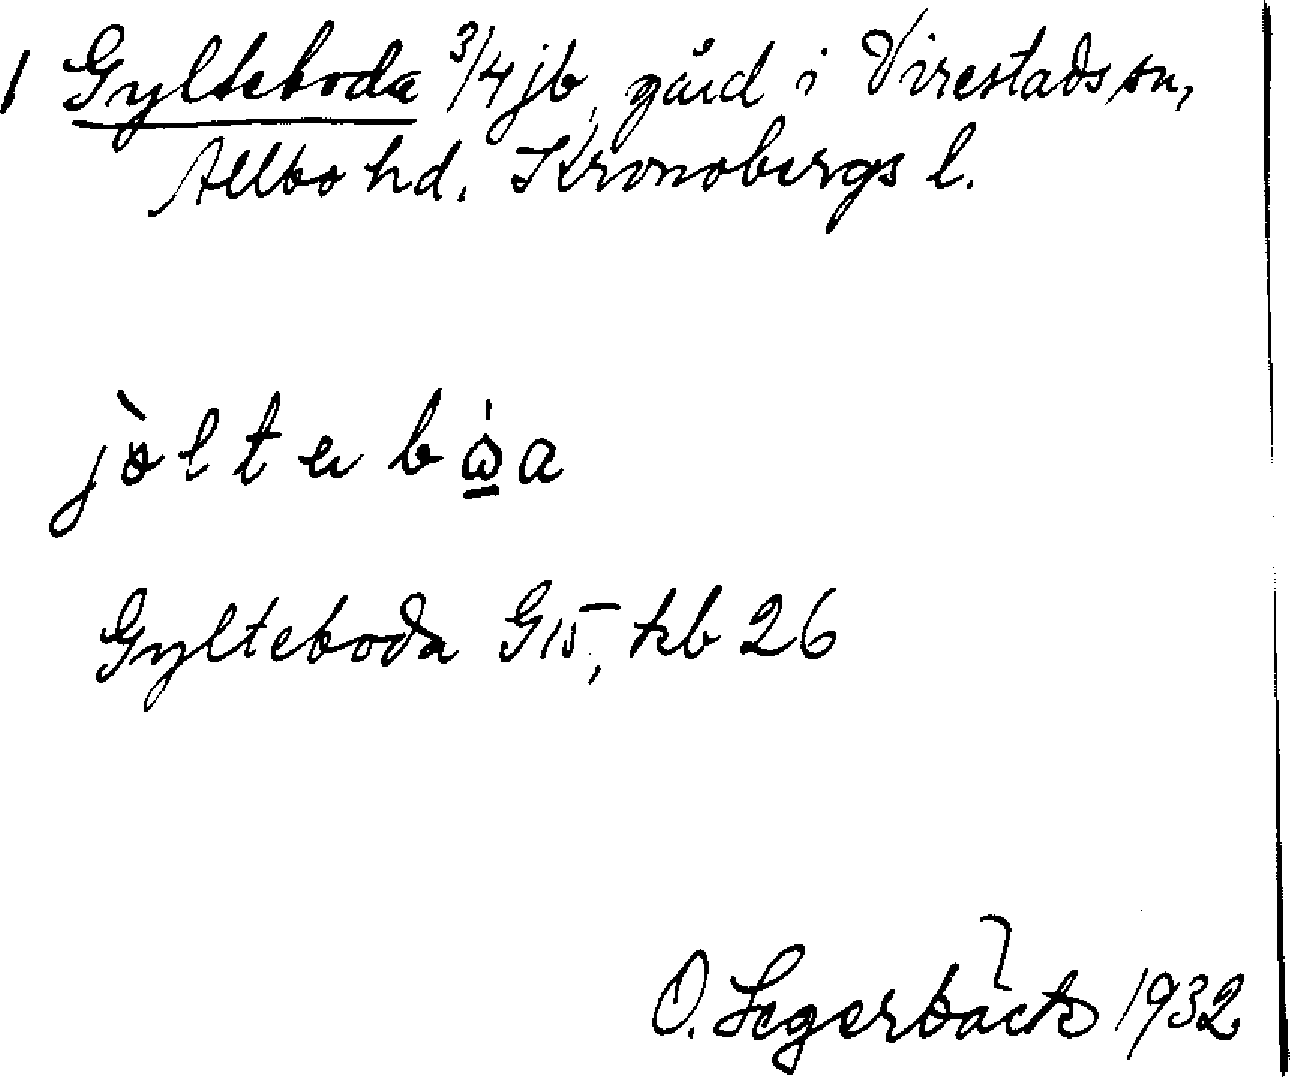 1 Gylteboda 3/4 jb, gård i Virestads sn,
Allbo hd. Kronobergs l.
jɵ̀ltɘbω̲̇a
Gylteboda G15, kb 26
O. Segerbäck 1932